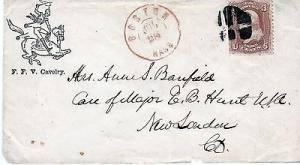 BOSTON
28
MASS.
3 3
F. F. V. Cavalry.
Mrs. Anne S. Banfield
Care of Major E. B. Hunt U.S.
New London
Ct.